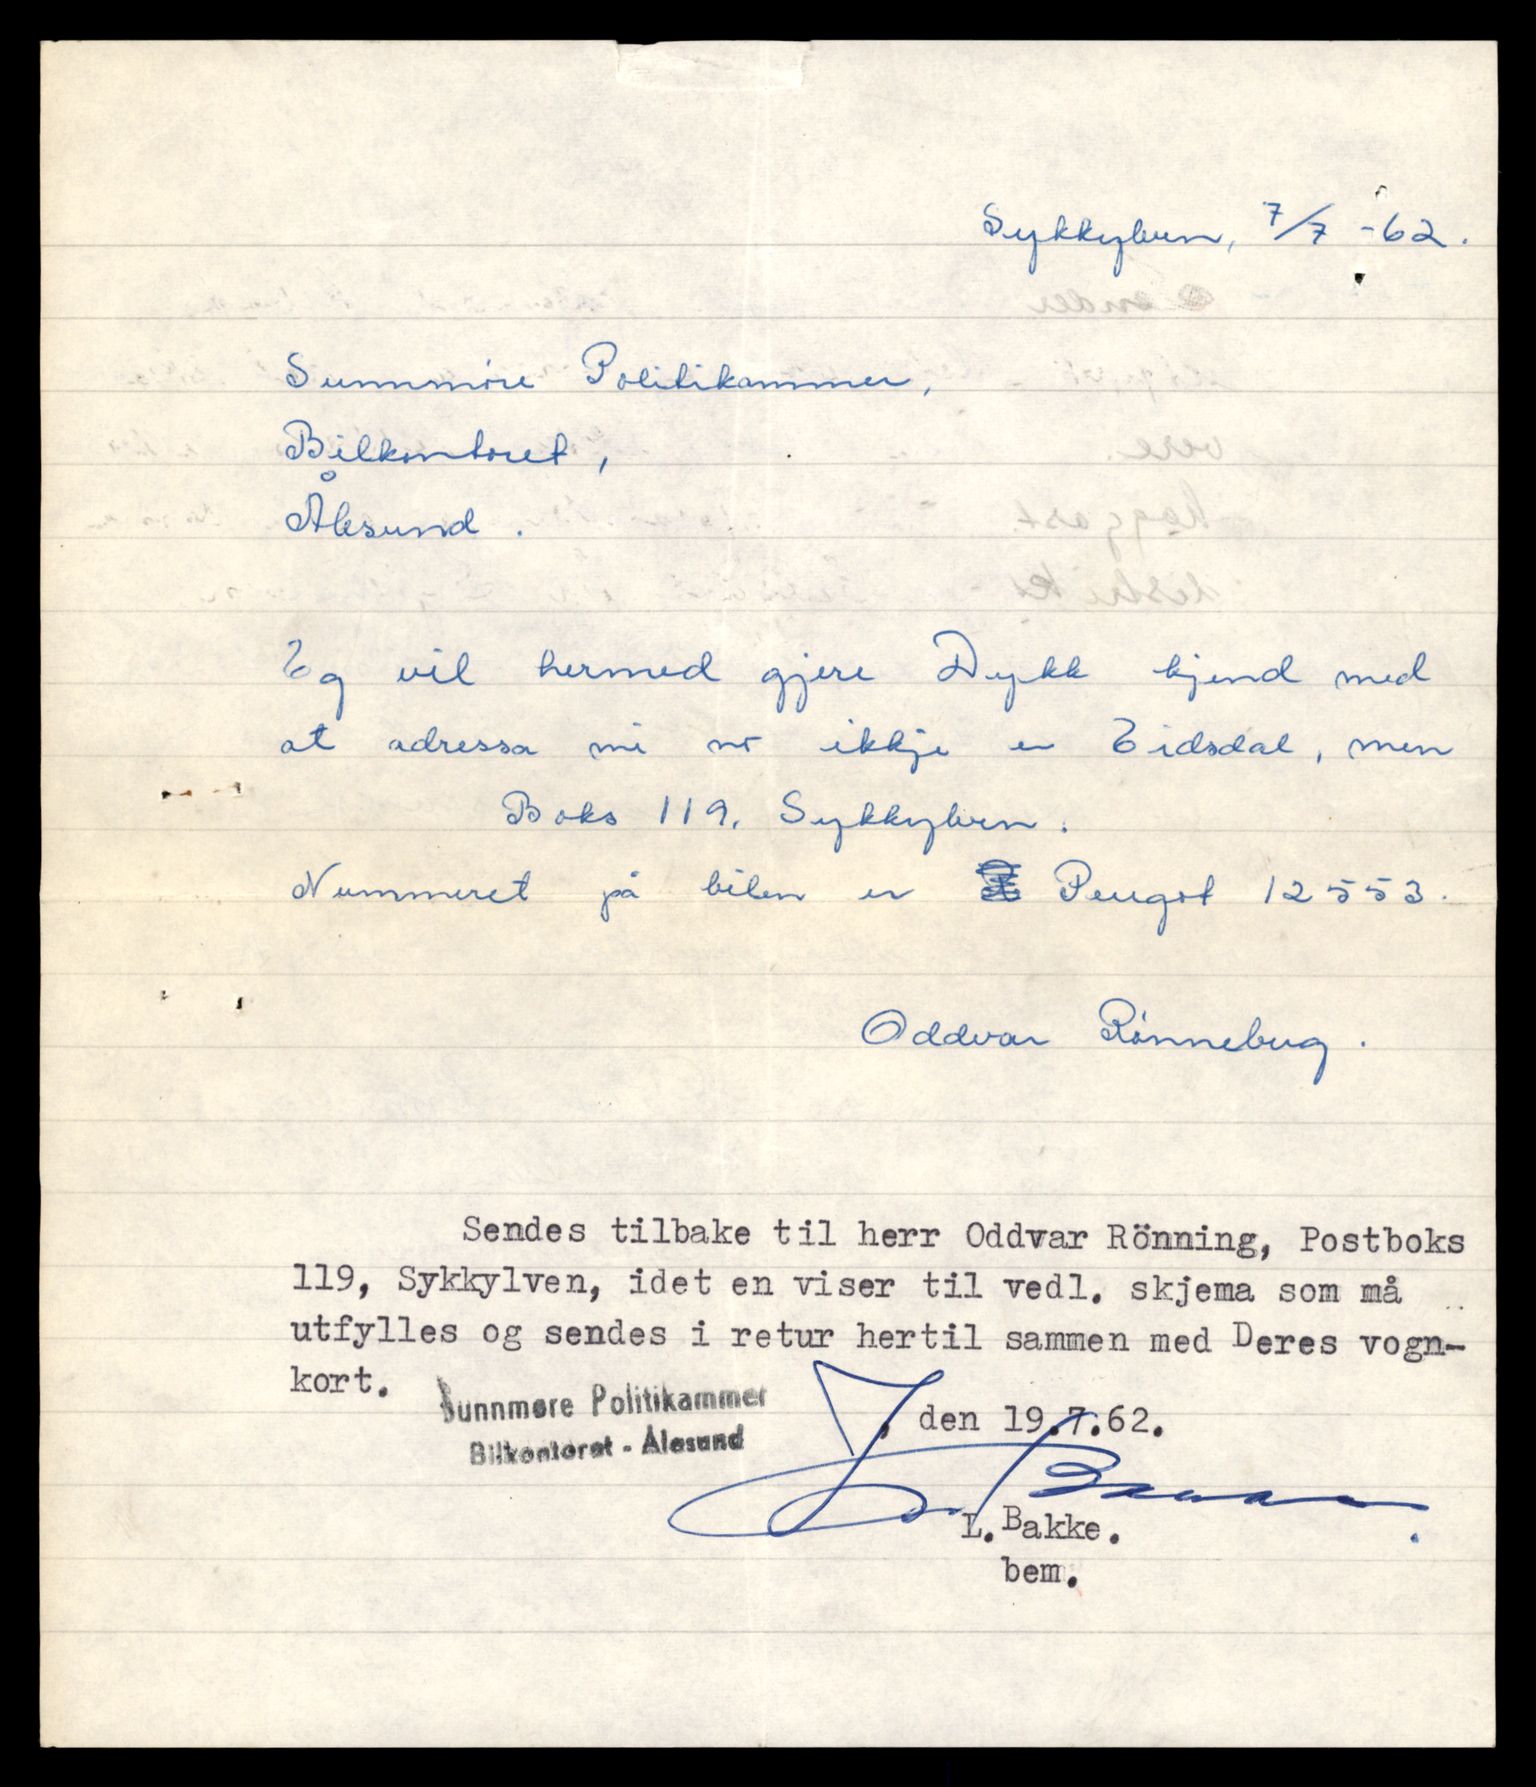 Sykkylven, 7/7 -62.
Sunnmöre Politikammer,
Bilkontoret,
Ålesund.
Eg vil hermed gjere Dykk kjend med
at adressa mi no ikkje er Eidsdal, men
Boks 119, Sykkylven.
Nummeret på bilen er Peugot 12553.
Oddvar Rönneberg.
Sendes tilbake til herr Oddvar Rönning, Postboks
119, Sykkylven, idet en viser til vedl. skjema som må
utfylles og sendes i retur hertil sammen med Deres vogn-
kort.
Sunnmøre Politikammer
Bilkontoret - Ålesund
, den 19.7.62.
L. Bakke.
bem.